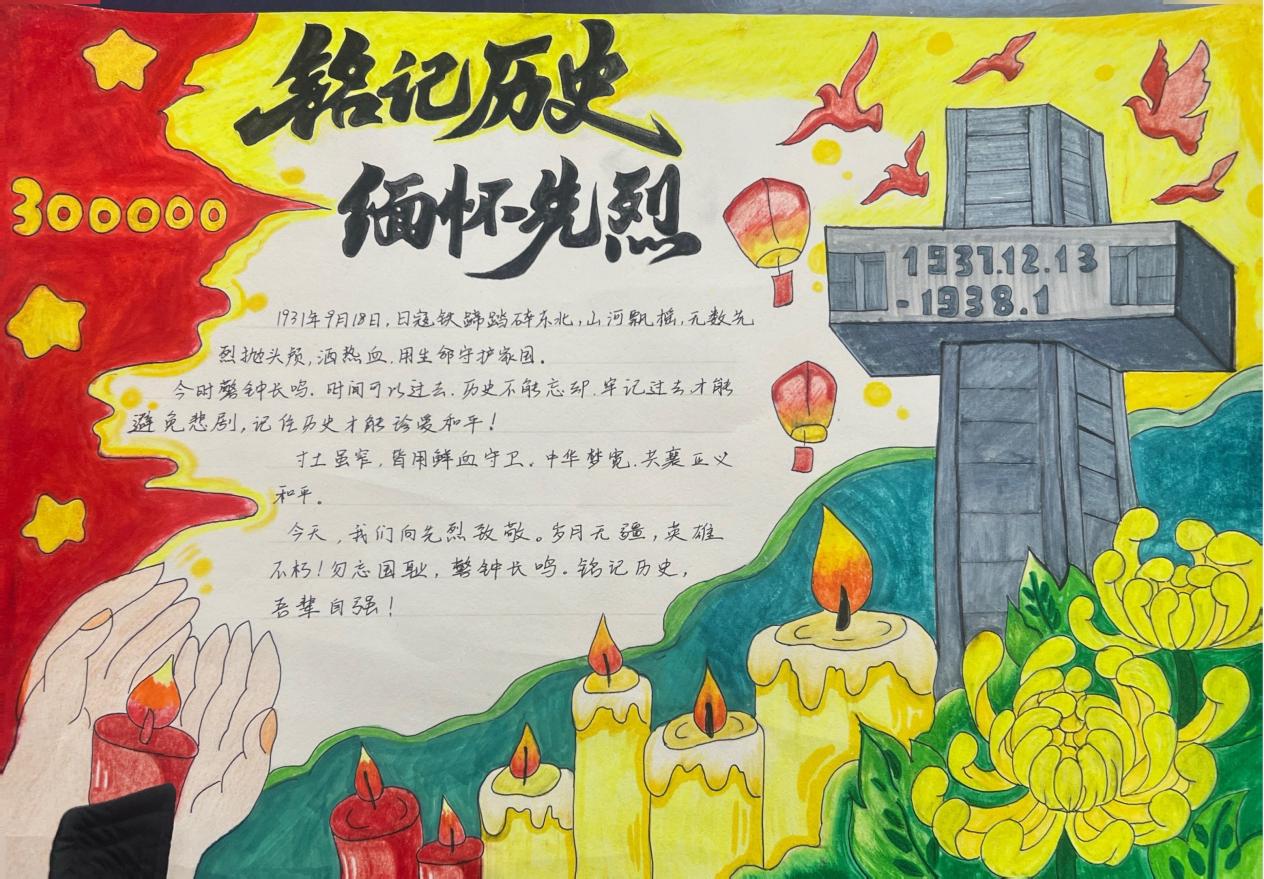 铭记历史
缅怀先烈
300000
1937.12.13
-1938.1
1931年9月18日,日寇铁蹄踏碎东北,山河飘摇,无数先
烈抛头颅,洒热血.用生命守护家国。
今时警钟长鸣.时间可以过去.历史不能忘却.牢记过去才能
避免悲剧,记住历史才能珍爱和平!
寸土虽窄,皆用鲜血守卫。中华梦宽.共襄正义
和平。
今天,我们向先烈致敬。岁月无疆,英雄
不朽!勿忘国耻,警钟长鸣。铭记历史,
吾辈自强!